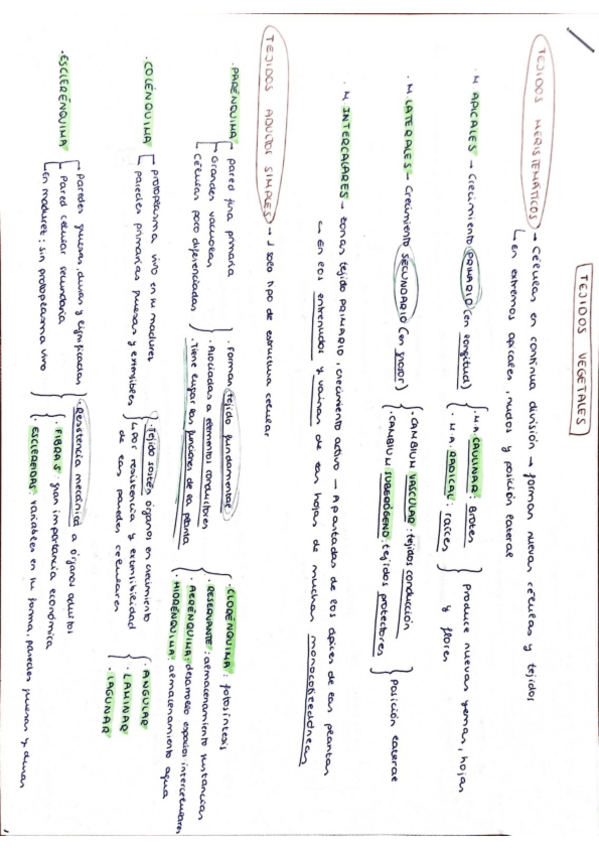 TEJIDOS VEGETALES
TEJIDOS MERISTEMÁTICOS → Células en continua división → forman nuevas células y tejidos
en extremos apicales, nudos y posición lateral
· M APICALES → Crecimiento PRIMARIO (en longitud)
· M.A. CAULINAR: Brotes
· M.A. RADICAL: raíces
Produce nuevas yemas, hojas
y flores
· M LATERALES → Crecimiento SECUNDARIO (en grosor)
· CAMBIUM VASCULAR: tejidos conducción
· CAMBIUM SUBERÓGENO: tejidos protectores
Posición lateral
· M INTERCALARES → zonas tejido PRIMARIO, crecimiento activo → Apartadas de los ápices de las plantas
↳ En los entrenudos y vainas de las hojas de muchas monocotiledóneas
TEJIDOS ADULTOS SIMPLES → 1 solo tipo de estructura celular
· PARÉNQUIMA
pared fina primaria
Grandes vacuolas
células poco diferenciadas
· Forman tejido fundamental
· Asociadas a elementos conductores
· Tiene lugar las funciones de la planta
· CLORÉNQUIMA: fotosíntesis
· RESERVANTE: almacenamiento sustancias
· AERÉNQUIMA: desarrollo espacios intercelulares
· HIDRÉNQUIMA: almacenamiento agua
· COLÉNQUIMA
protoplasma vivo en su madurez
paredes primarias gruesas y extensibles
· Tejido sostén órganos en crecimiento
↳ por resistencia y extensibilidad
de las paredes celulares
· ANGULAR
· LAMINAR
· LAGUNAR
· ESCLERÉNQUIMA
Paredes gruesas, duras y lignificadas
Pared celular secundaria
en madurez: sin protoplasma vivo
· Resistencia mecánica a órganos adultos
· FIBRAS: gran importancia económica
· ESCLEREIDAS: variables en su forma, paredes gruesas y duras